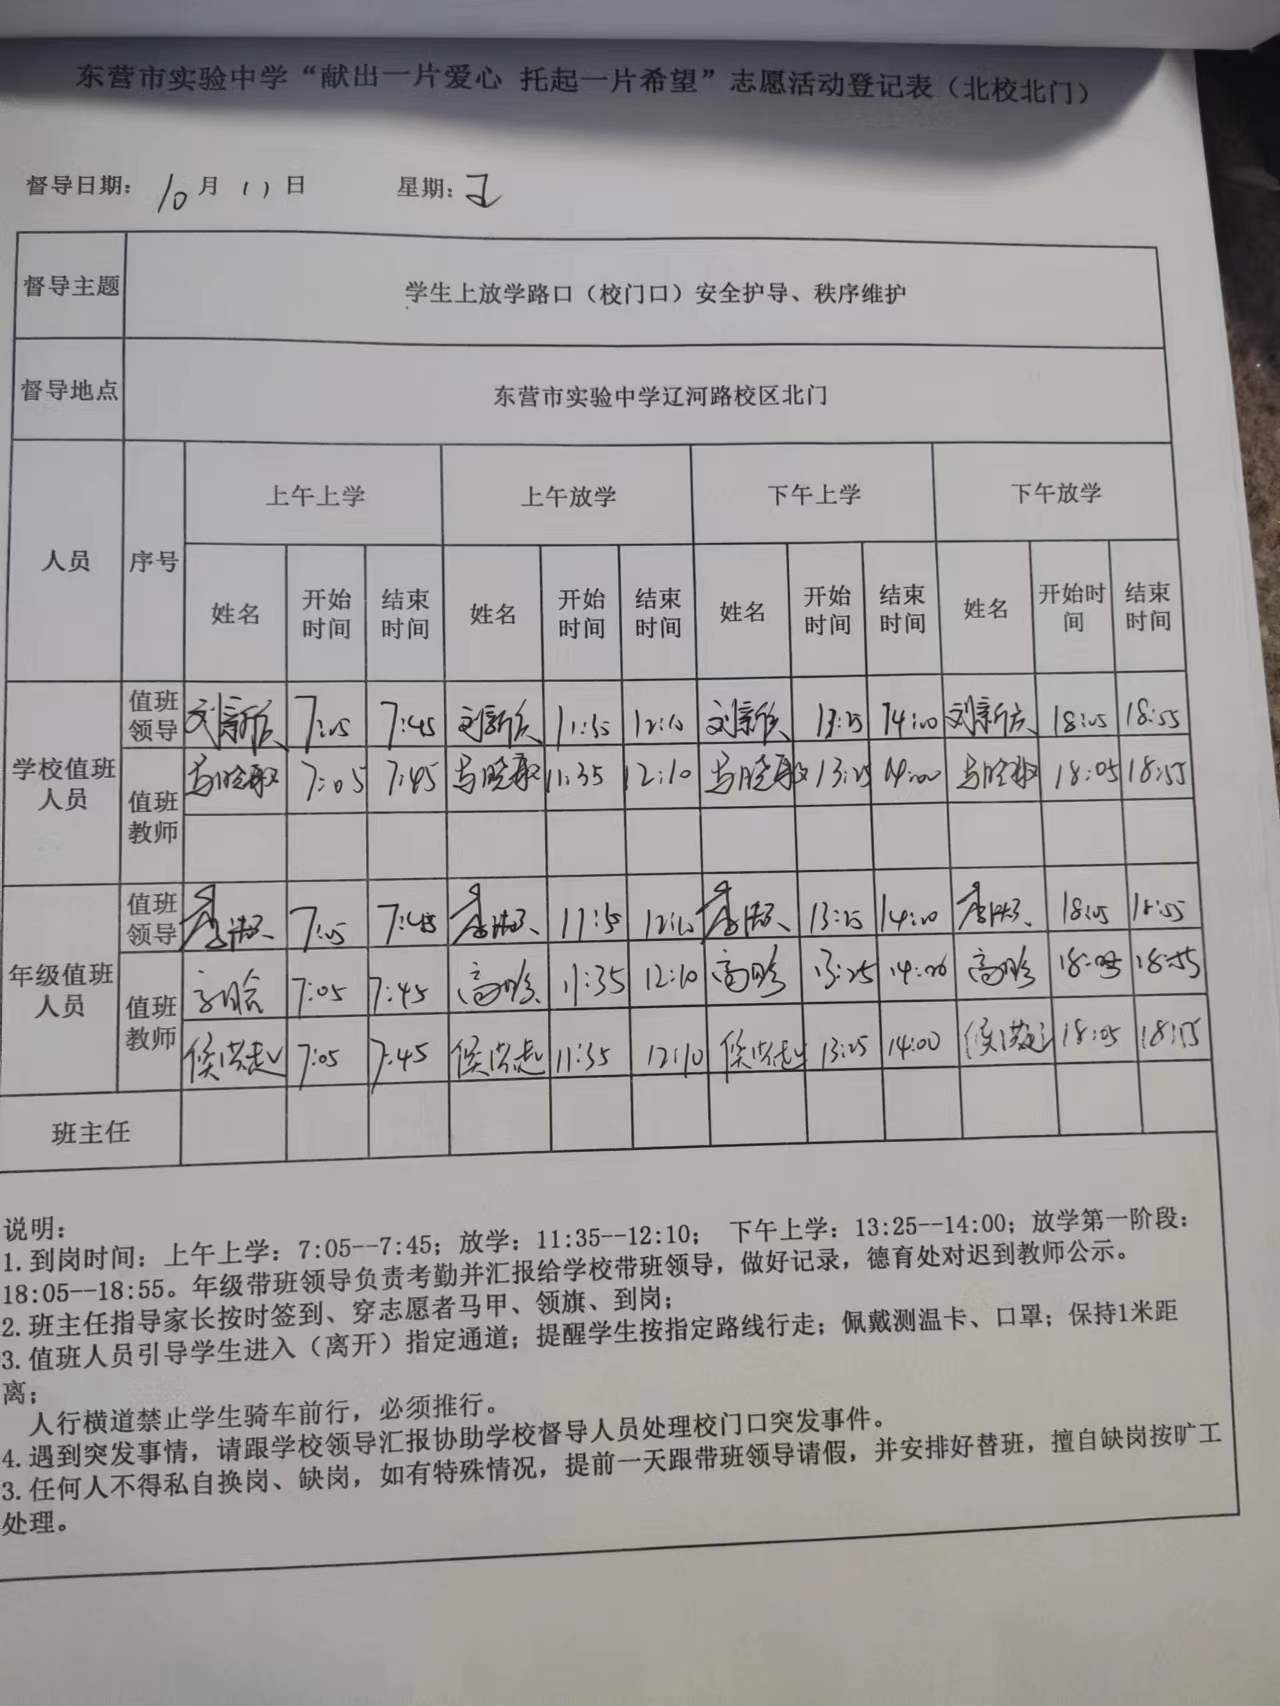 东营市实验中学“献出一片爱心 托起一片希望”志愿活动登记表（北校北门）
督导日期： 10月11日 星期：五
督导主题 学生上放学路口（校门口）安全护导、秩序维护
督导地点 东营市实验中学辽河路校区北门
人员 序号 上午上学 上午放学 下午上学 下午放学
姓名 开始时间 结束时间 姓名 开始时间 结束时间 姓名 开始时间 结束时间 姓名 开始时间 结束时间
学校值班人员 值班领导 刘新 7:05 7:45 刘新 11:35 12:10 刘新 13:25 14:00 刘新 18:05 18:55
值班教师 马晓敏 7:05 7:45 马晓敏 11:35 12:10 马晓敏 13:25 14:00 马晓敏 18:05 18:55
年级值班人员 值班领导 7:05 7:45 11:35 12:10 13:25 14:00 18:05 18:55
值班教师 高晗 7:05 7:45 高晗 11:35 12:10 高晗 13:25 14:00 高晗 18:05 18:55
侯 7:05 7:45 侯 11:35 12:10 侯 13:25 14:00 侯 18:05 18:55
班主任
说明：
1.到岗时间：上午上学：7:05--7:45；放学：11:35--12:10； 下午上学：13:25--14:00；放学第一阶段：
18:05--18:55。年级带班领导负责考勤并汇报给学校带班领导，做好记录，德育处对迟到教师公示。
2.班主任指导家长按时签到、穿志愿者马甲、领旗、到岗；
3.值班人员引导学生进入（离开）指定通道；提醒学生按指定路线行走；佩戴测温卡、口罩；保持1米距
离；
人行横道禁止学生骑车前行，必须推行。
4.遇到突发事情，请跟学校领导汇报协助学校督导人员处理校门口突发事件。
3.任何人不得私自换岗、缺岗，如有特殊情况，提前一天跟带班领导请假，并安排好替班，擅自缺岗按旷工
处理。